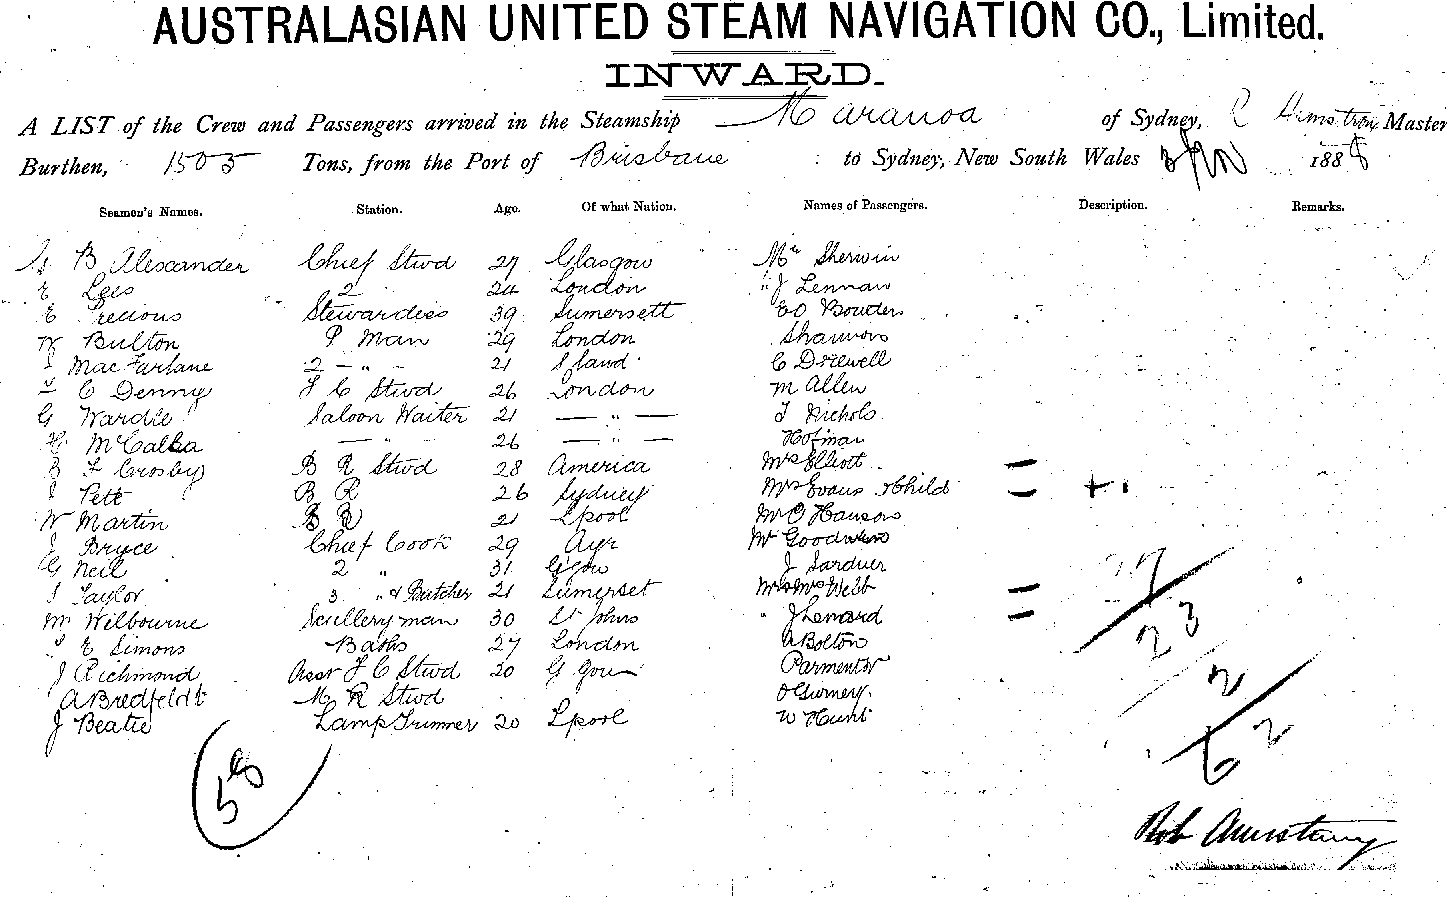 AUSTRALASIAN UNITED STEAM NAVIGATION CO., Limited.
INWARD.
A LIST of the Crew and Passengers arrived in the Steamship Maranoa of Sydney, R Armstrong Master
Burthen, 1505 Tons, from the Port of Brisbane to Sydney, New South Wales 3 Nov 1888
Seamen's Names. Station. Age. Of what Nation. Names of Passengers. Description. Remarks.
B Alexander Chief Stwd 27 Glasgow Mr Sherwin
E Lees 2 " 24 London " J Lennan
E Precious Stewardess 39 Sumersett Bowden
W Bulton P Man 29 London Shannon
J MacFarlane 2 - " - 21 Sland C Drewell
C Denny F C Stwd 26 London M Allen
G Wardle Saloon Waiter 21 — " — J Nichols
H McCalba — " - 26 — " — Hofman
F Crosby B R Stwd 28 America Mrs Elliott
J Pett B R 26 Sydney Mrs Evans & Child
W Martin B R 21 Lpool Mr O Hanson
J Bryce Chief Cook 29 Ayr Mr Goodwin
G Neil 2 " 31 Ggow J Gardner
J Taylor 3 " & Butcher 21 Sumerset Mr & Mrs Webb
M Wilbourne Scullery man 30 St Johns " J Lenard
E Simons Baths 27 London A Bolton
J Richmond Asst F C Stwd 20 G Gow Parmentor
A Bredfeldt M R Stwd O Gurney
J Beatie Lamp Trimmer 20 Lpool W Hunt
27
23
2
62
58
Rob Armstrong